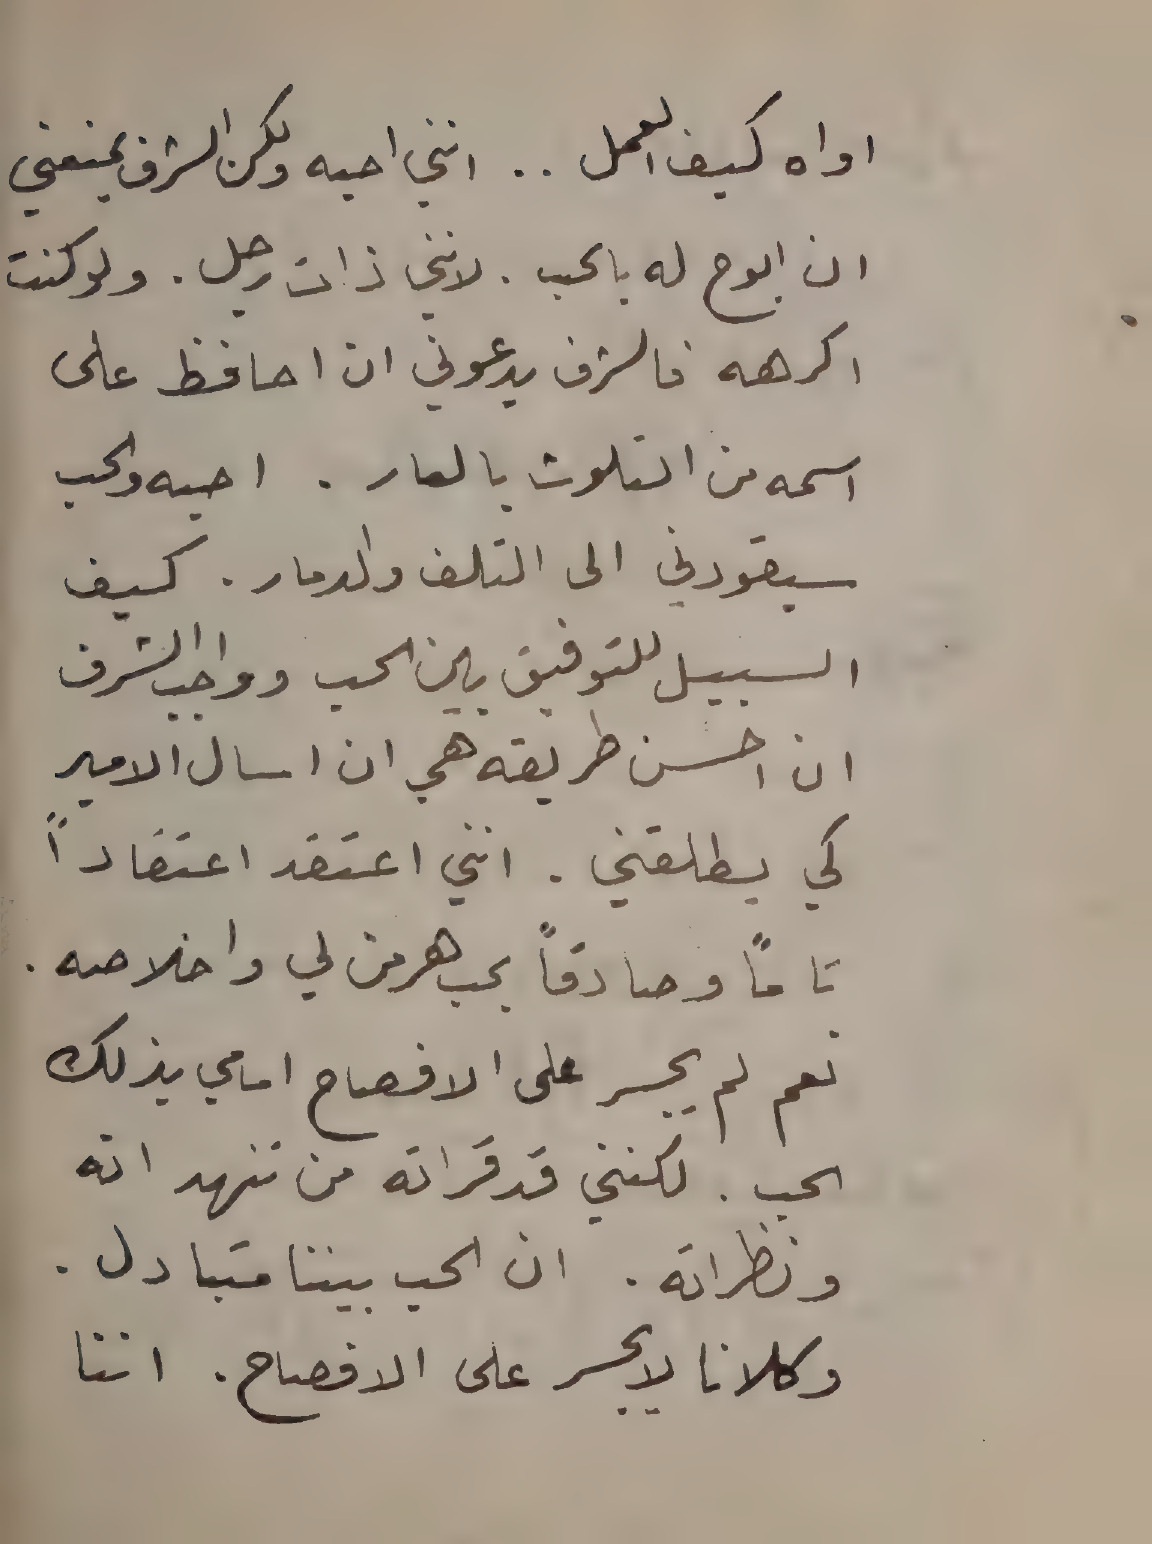 اواه كيف العمل .. انني احبه ولكن الشرف يمنعني
ان ابوح له بالحب . لانني ذات رجل . ولو كنت
اكرهه فالشرف يدعوني ان احافظ على
اسمه من التلوث بالعار . احبه والحب
سيقودني الى التلف والدمار . كيف
السبيل للتوفيق بين الحب وواجب الشرف
ان احسن طريقه هي ان اسال الامير
كي يطلقني . انني اعتقد اعتقاداً
تاماً وصادقاً بحب هرمن لي واخلاصه .
نعم لم يجسر على الافصاح امامي بذلك
الحب . لكنني قد قراته من تنهد اته
ونظراته . ان الحب بيننا متبادل .
وكلانا لا يجسر على الافصاح . اننا